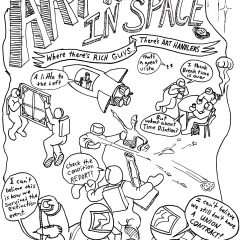 ART
IN SPACE
Where there's RICH GUYS
There's ART HANDLERS
A little to
the left
that's
a great
vista
I think
Break time
is over
But
what about
Time Dilation?
Check the
Condition
REPORT!
I can't
believe this
is how we
survived the
Extinction
event
I can't believe
we still don't have
A UNION
CONTRACT!